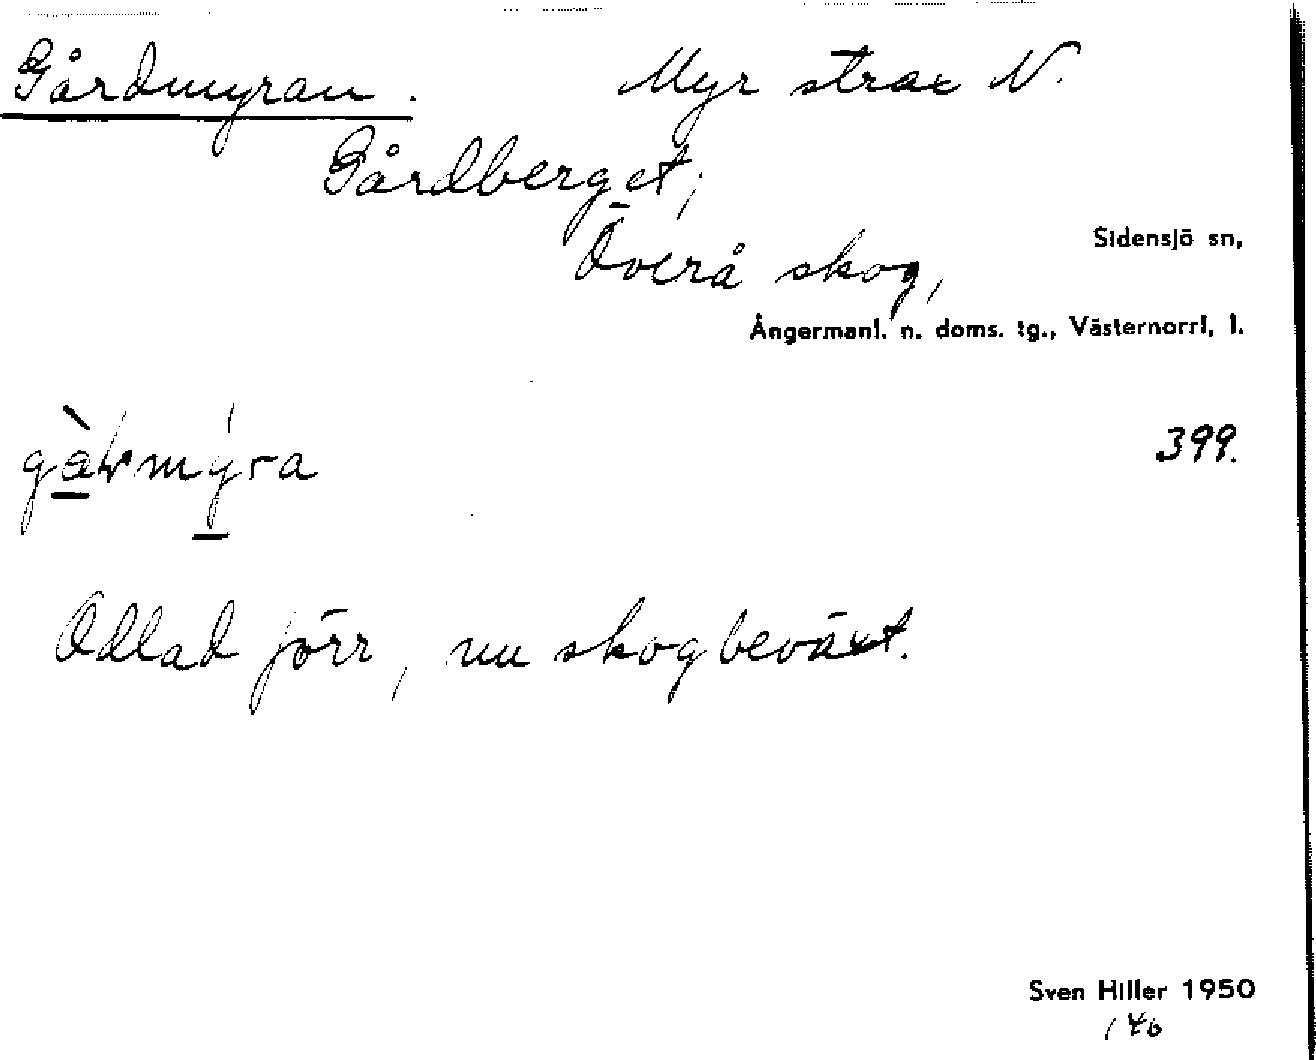 Gårdmyran. Myr strax N.
Gårdberget;
Överå skog,
Sidensjö sn,
Ångermanl. n. doms. tg., Västernorrl, l.
399.
Odlad förr, nu skogbeväxt.
Sven Hiller 1950
146